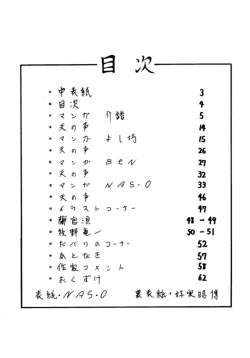 目次
・中表紙 3
・目次 4
・マンガ 介錯 5
・天の声 14
・マンガ よし坊 15
・天の声 26
・マンガ BEN 27
・天の声 32
・マンガ NAS・O 33
・天の声 46
・イラストコーナー 47
・蘭宮涼 48-49
・牧野竜一 50-51
・だべりのコーナー 52
・あとがき 57
・作家コメント 58
・おくずけ 62
表紙・NAS・O 裏表紙・林実